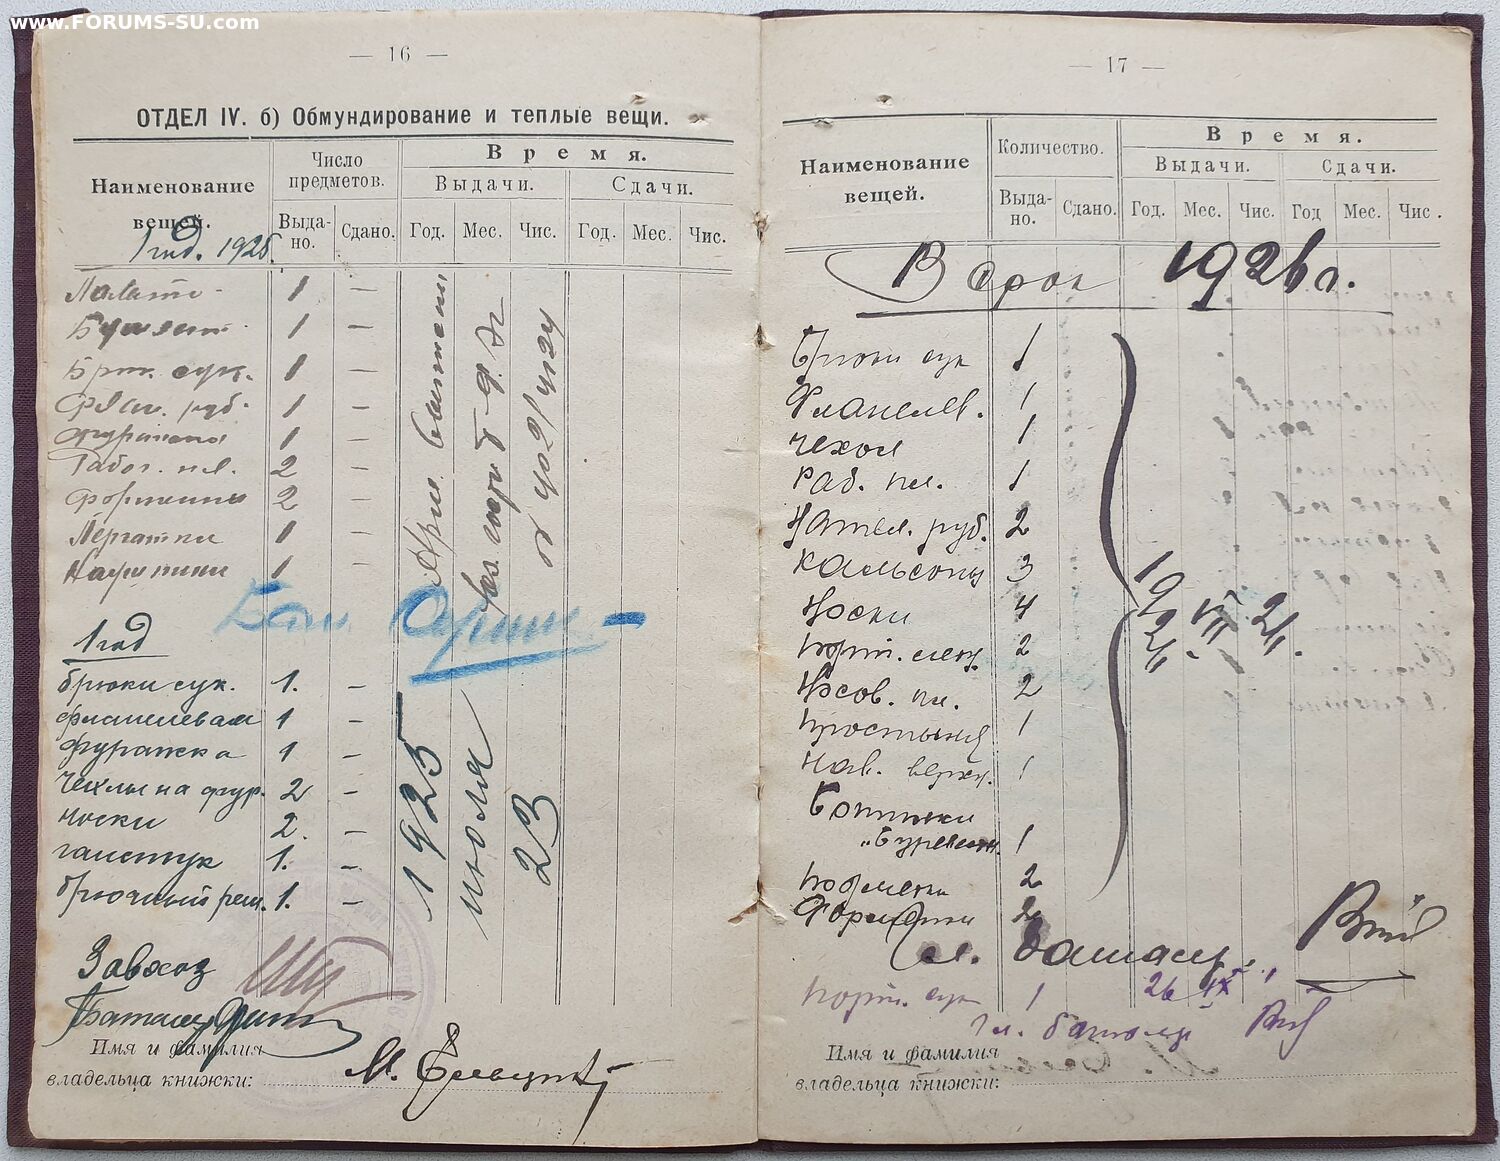 www.FORUMS-SU.com
— 16 —
ОТДЕЛ IV. б) Обмундирование и теплые вещи.
Наименование вещей.
Число предметов.
Время.
Выдачи.
Сдачи.
Выдано.
Сдано.
Год.
Мес.
Чис.
Год.
Мес.
Чис.
1 год. 1925.
1 —
Бушлат 1 —
Брюк. сук. 1 —
Флан. руб. 1 —
Фуражка 1 —
Рабоч. пл. 2 —
Форменки 2 —
Перчатки 1 —
1 —
1 год
брюки сук. 1. —
фланелевая 1 —
фуражка 1 —
чехлы на фур. 2 —
носки 2. —
галстук 1. —
брючный рем. 1. —
1925 июля 23
Завхоз
Имя и фамилия
владельца книжки:
М.
— 17 —
Наименование вещей.
Количество.
Время.
Выдачи.
Сдачи.
Выдано.
Сдано.
Год.
Мес.
Чис.
Год
Мес.
Чис.
В срок 1926 г.
Брюки сук 1
Фланелев. 1
чехол 1
Раб. пл. 1
Нател. руб. 2
Кальсоны 3
Носки 4
2
Носов. пл. 2
Простыня 1
Нав. верхн. 1
Ботинки
1
2
Форменки 2
1926. VII 26.
1 26 IX
Имя и фамилия
владельца книжки: